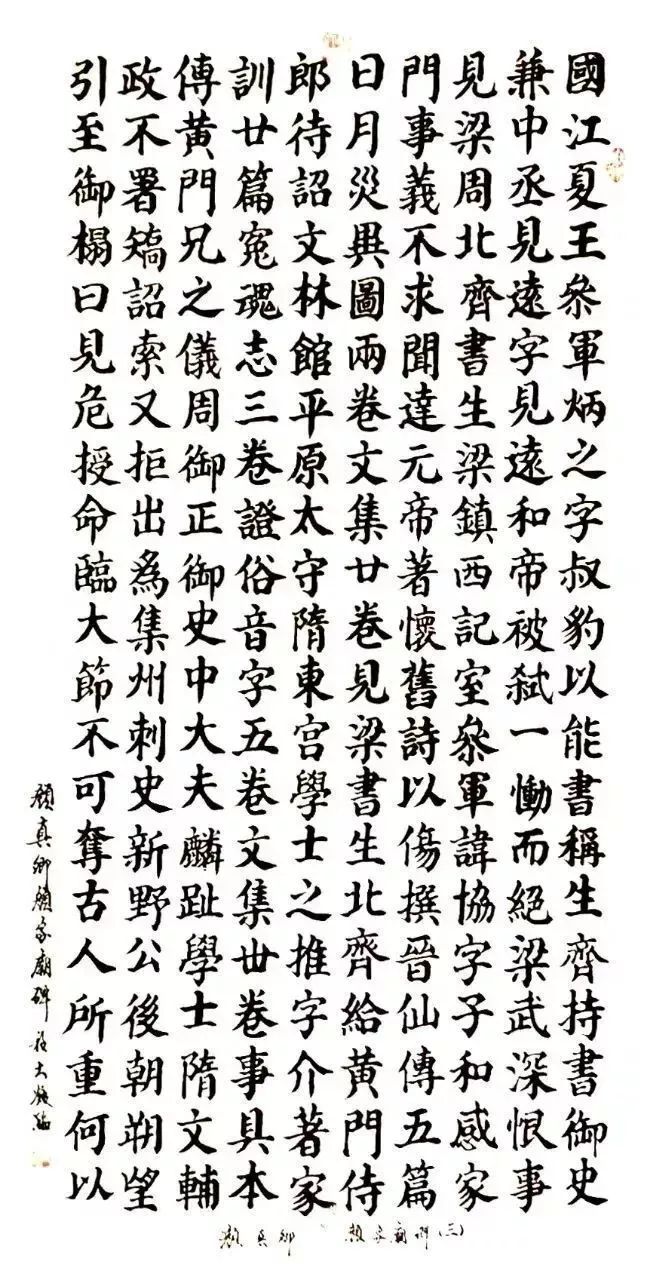 國江夏王叅軍炳之字叔豹以能書稱生齊持書御史
兼中丞見遠字見遠和帝被弑一慟而絕梁武深恨事
見梁周北齊書生梁鎮西記室叅軍諱協字子和感家
門事義不求聞達元帝著懷舊詩以傷撰晉仙傳五篇
日月災異圖兩卷文集廿卷見梁書生北齊給黃門侍
郎待詔文林館平原太守隋東宮學士之推字介著家
訓廿篇寃魂志三卷證俗音字五卷文集丗卷事具本
傳黃門兄之儀周御正御史中大夫麟趾學士隋文輔
政不署矯詔索又拒出爲集州刺史新野公後朝朔望
引至御榻曰見危授命臨大節不可奪古人所重何以
顏真卿顏家廟碑
顏真卿 顏家廟碑(三)